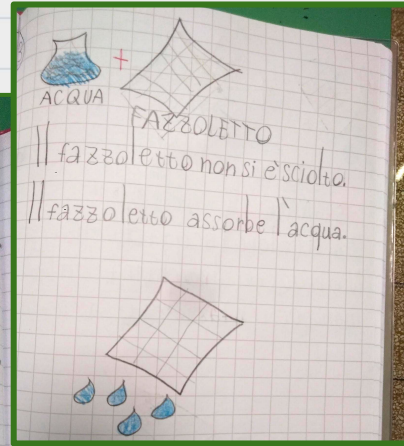 +
ACQUA
FAZZOLETTO
Il fazzoletto non si è sciolto.
Il fazzoletto assorbe l'acqua.